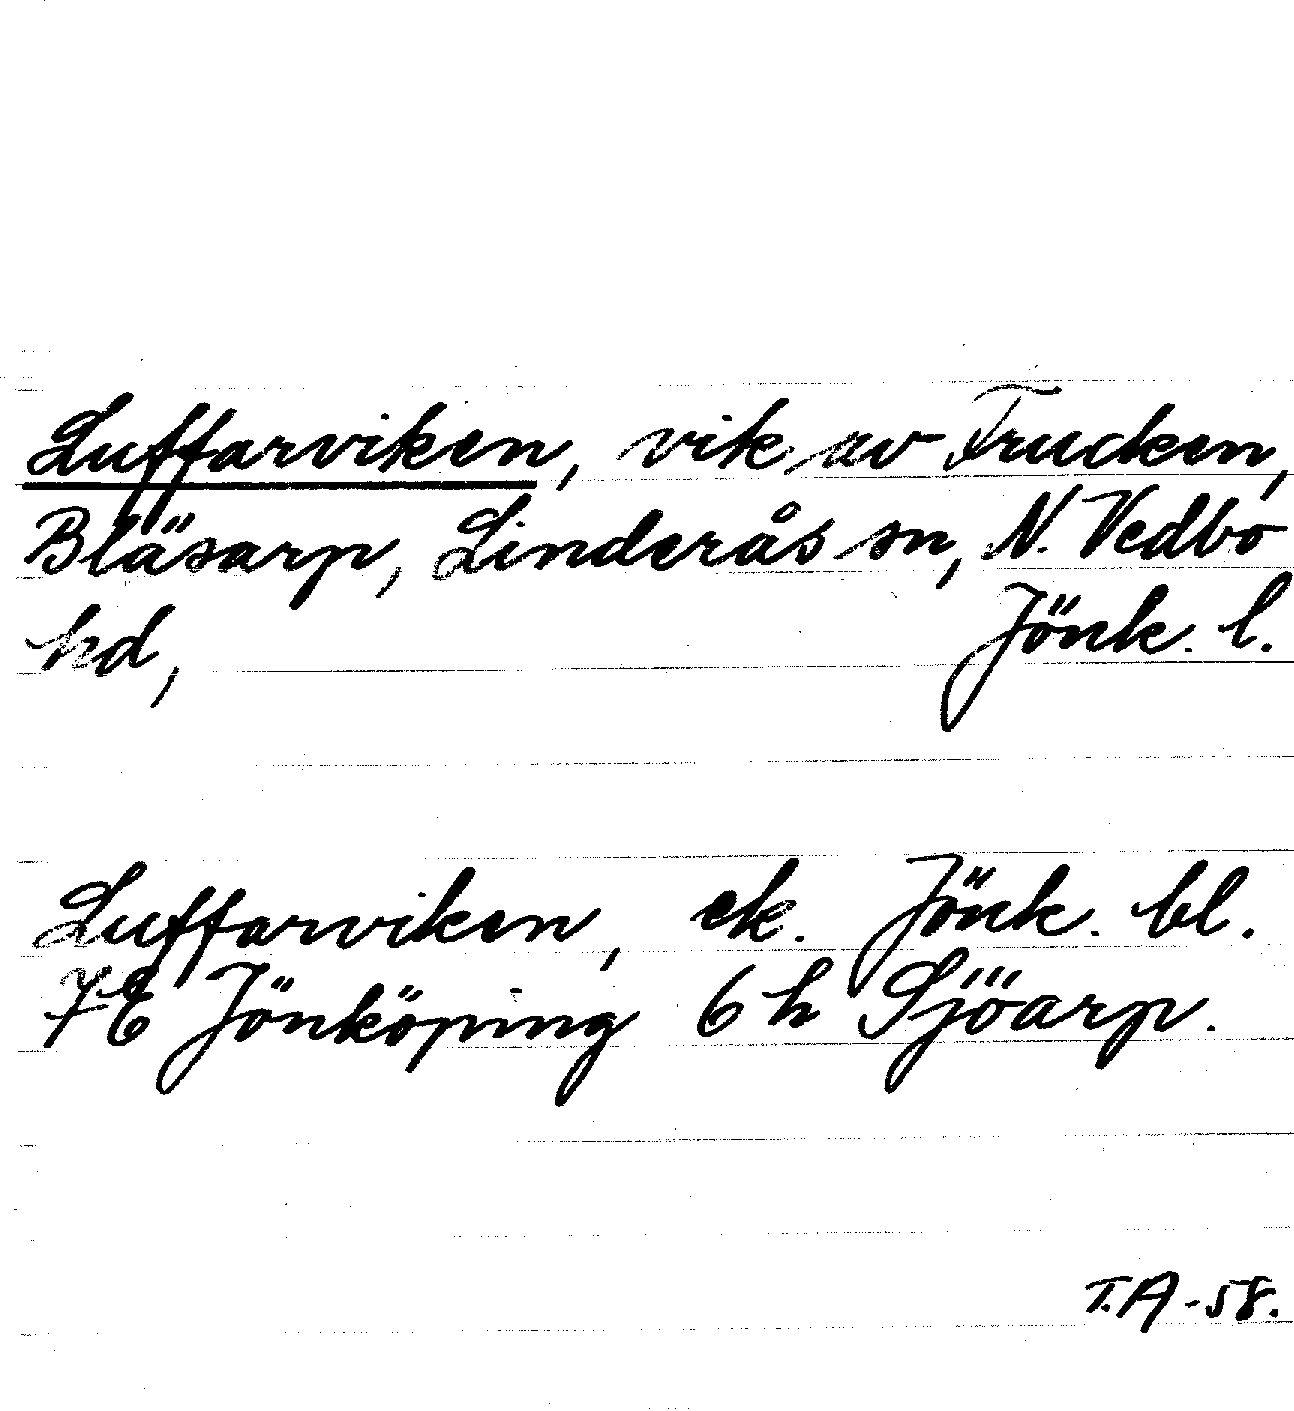 Luffarviken, vik av Frucken,
Bläsarp, Linderås sn, N. Vedbo
hd, Jönk. l.
Luffarviken, ek. Jönk. bl.
7E Jönköping 6h Sjöarp.
T.A -58.